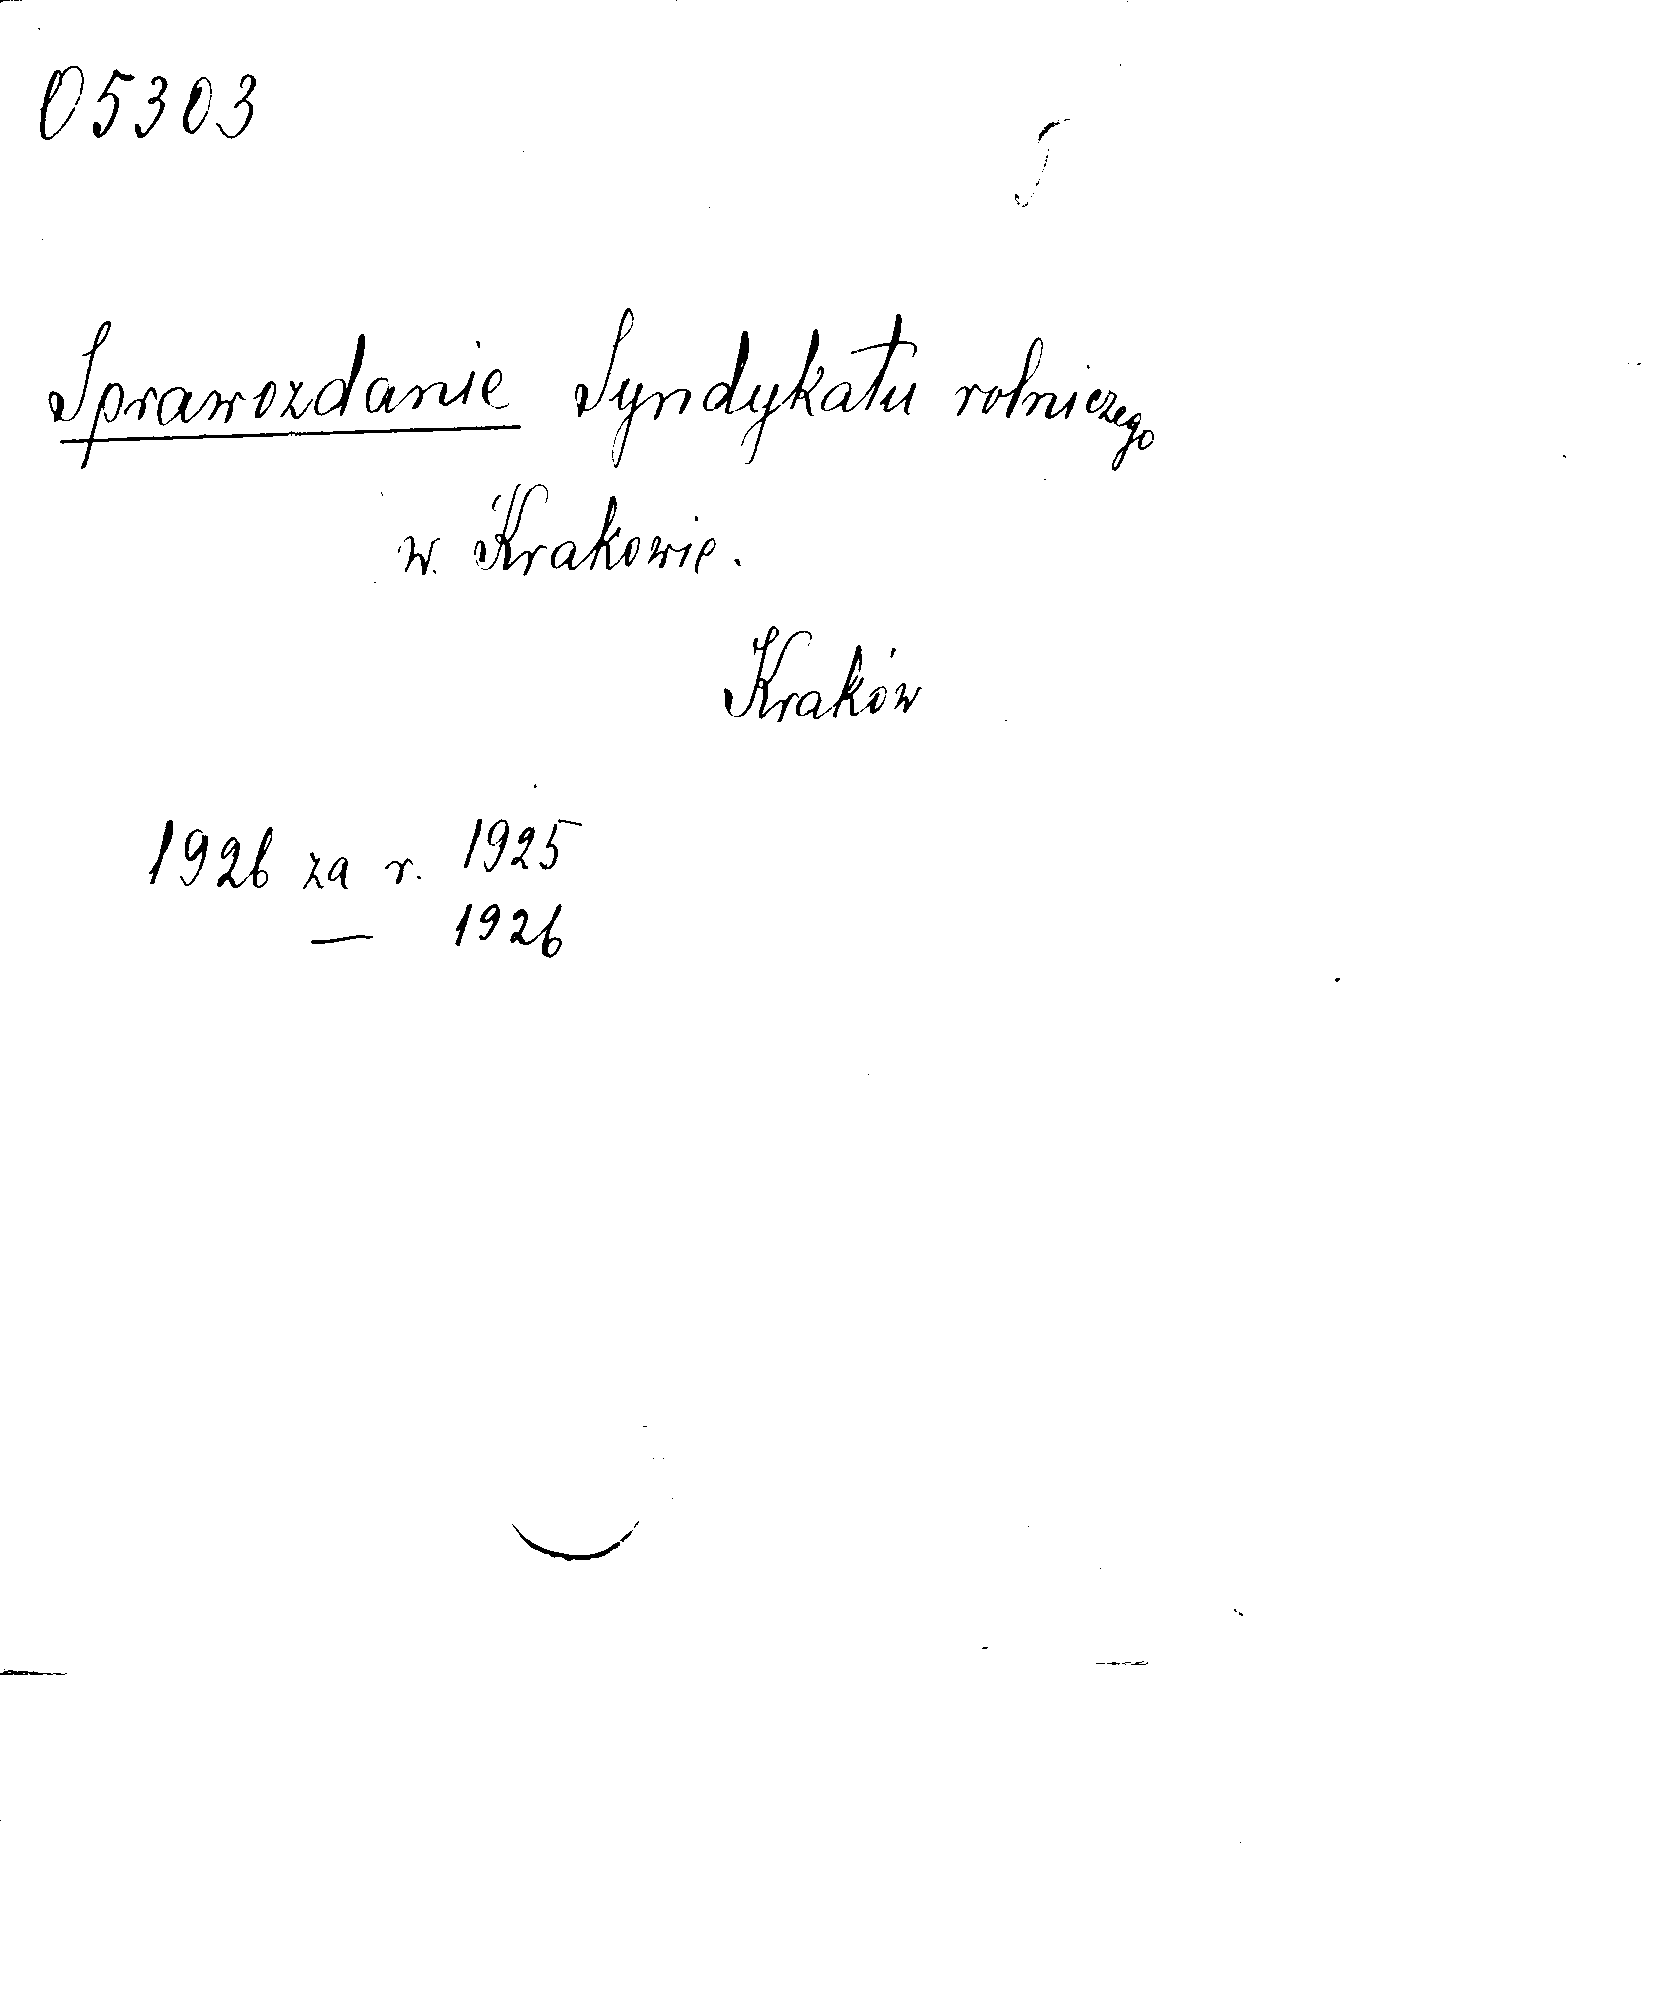 05303
Sprawozdanie Syndykatu rolniczego
w Krakowie.
Kraków
1926 za r. 1925
— 1926